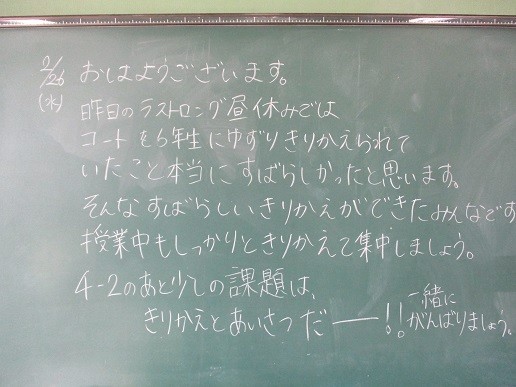 2/26
(水)
おはようございます。
昨日のラストロング昼休みでは
コートを6年生にゆずりきりかえられて
いたこと本当にすばらしかったと思います。
そんなすばらしいきりかえができたみんなです
授業中もしっかりときりかえて集中しましょう。
4-2のあと少しの課題は、
きりかえとあいさつだー!!
一緒に
がんばりましょう。